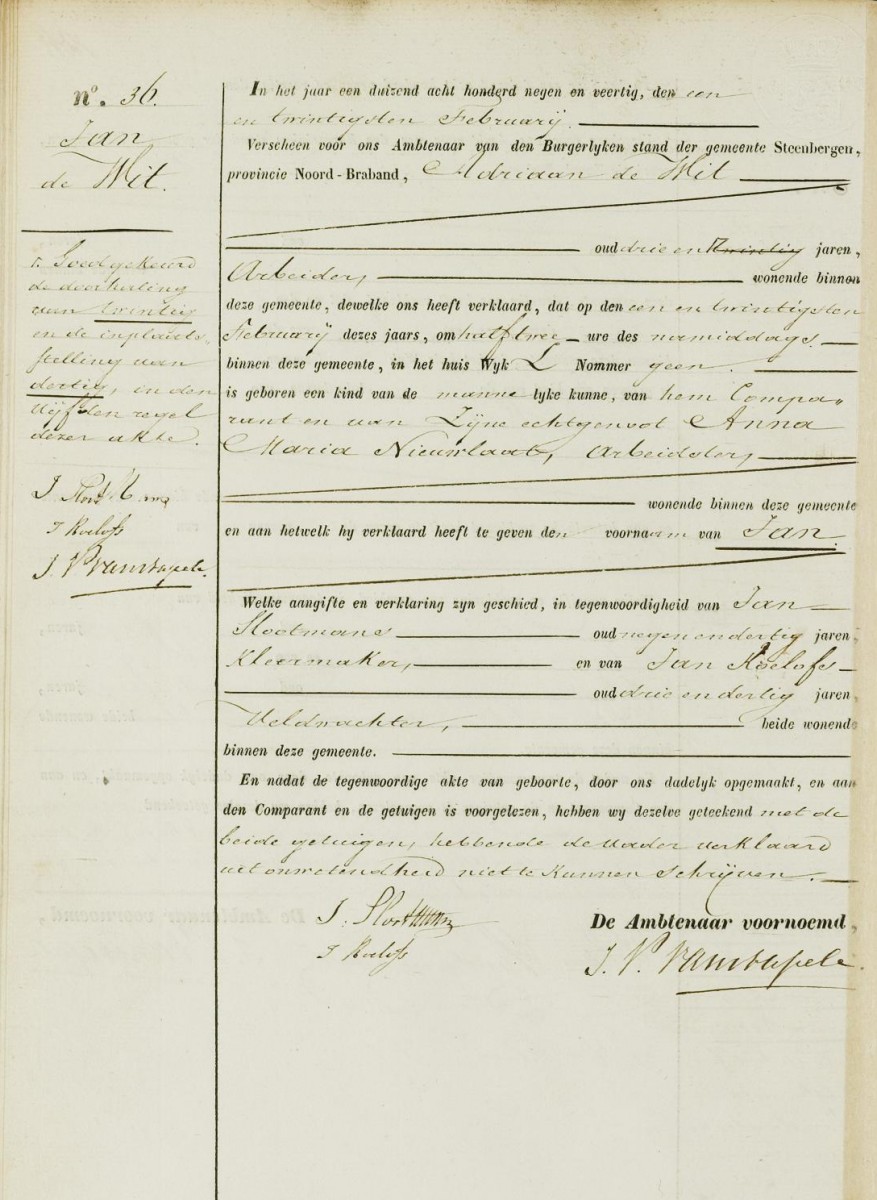 nº. 36.
Jan
de Wit.
r. Goedgekeurd
de doorhaling
van twintig
en de inplaats-
stelling van
dertig, in den
vijfden regel
dezer akte.
J Roelofs
In het jaar een duizend acht honderd negen en veertig, den een
en twintigsten Februarij.
Verscheen voor ons Ambtenaar van den Burgerlyken stand der gemeente Steenbergen,
provincie Noord-Braband, Adriaan de Wit
oud drie en twintig jaren,
Arbeider, wonende binnen
deze gemeente, dewelke ons heeft verklaard, dat op den een en twintigsten
Februarij dezes jaars, om half twee ure des namiddags.
binnen deze gemeente, in het huis Wyk L Nommer geen.
is geboren een kind van de mannelyke kunne, van hem Compa„
rant en van Zijne echtgenoot Anna
Maria Nieuwlaat, Arbeidster,
wonende binnen deze gemeente
en aan hetwelk hy verklaard heeft te geven den voornaam van Jan.
Welke aangifte en verklaring zyn geschied, in tegenwoordigheid van Jan
Slootmans oud negen en dertig jaren,
Kleermaker, en van Jan Roelofs
oud drie en dertig jaren,
Veldwachter, beide wonende
binnen deze gemeente.
En nadat de tegenwoordige akte van geboorte, door ons dadelyk opgemaakt, en aan
den Comparant en de getuigen is voorgelezen, hebben wy dezelve geteekend met de
beide getuigen, hebbende de Vader verklaard
uit onwetendheid niet te kunnen schrijven.
J. Slootmans
J Roelofs
De Ambtenaar voornoemd,
J. V.